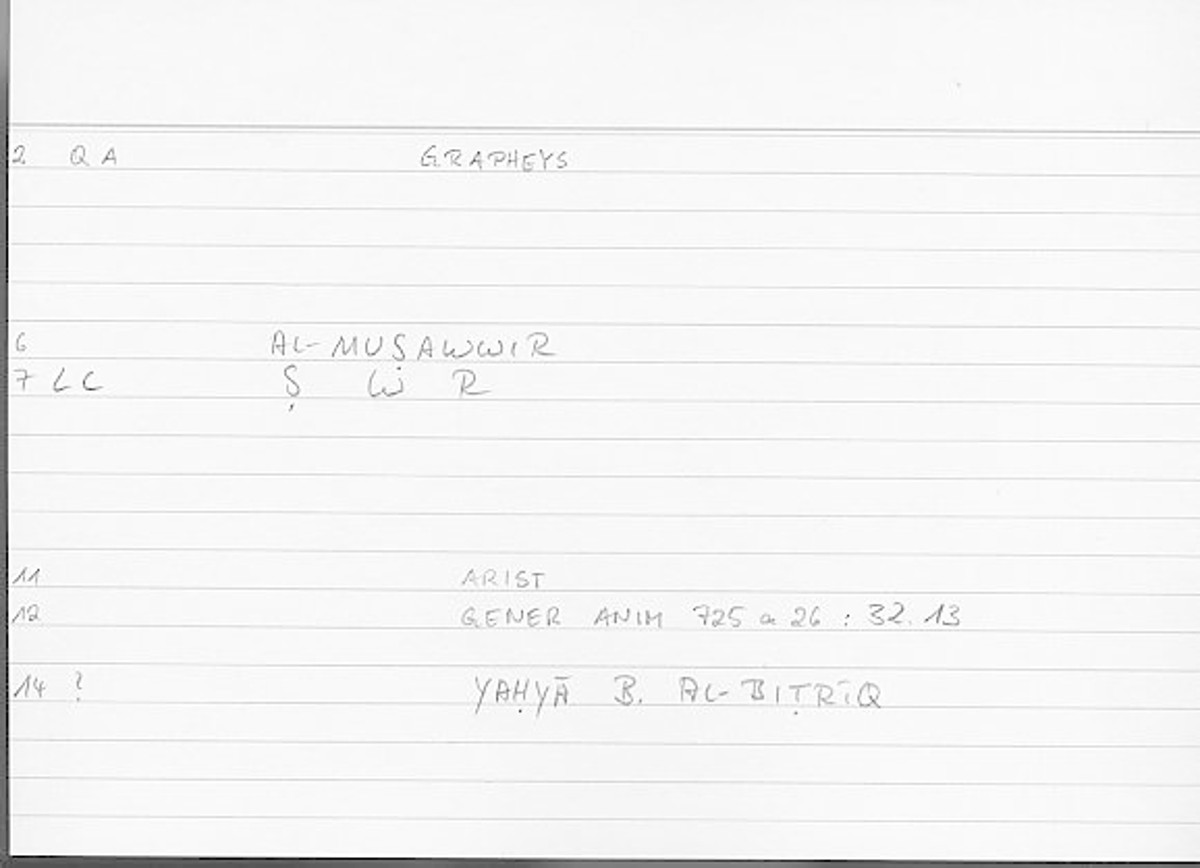 2 QA GRAPHEYS
6 AL-MUṢAWWIR
7 LC Ṣ W R
11 ARIST
12 GENER ANIM 725 a 26 : 32.13
14 ? YAḤYĀ B. AL-BIṬRĪQ